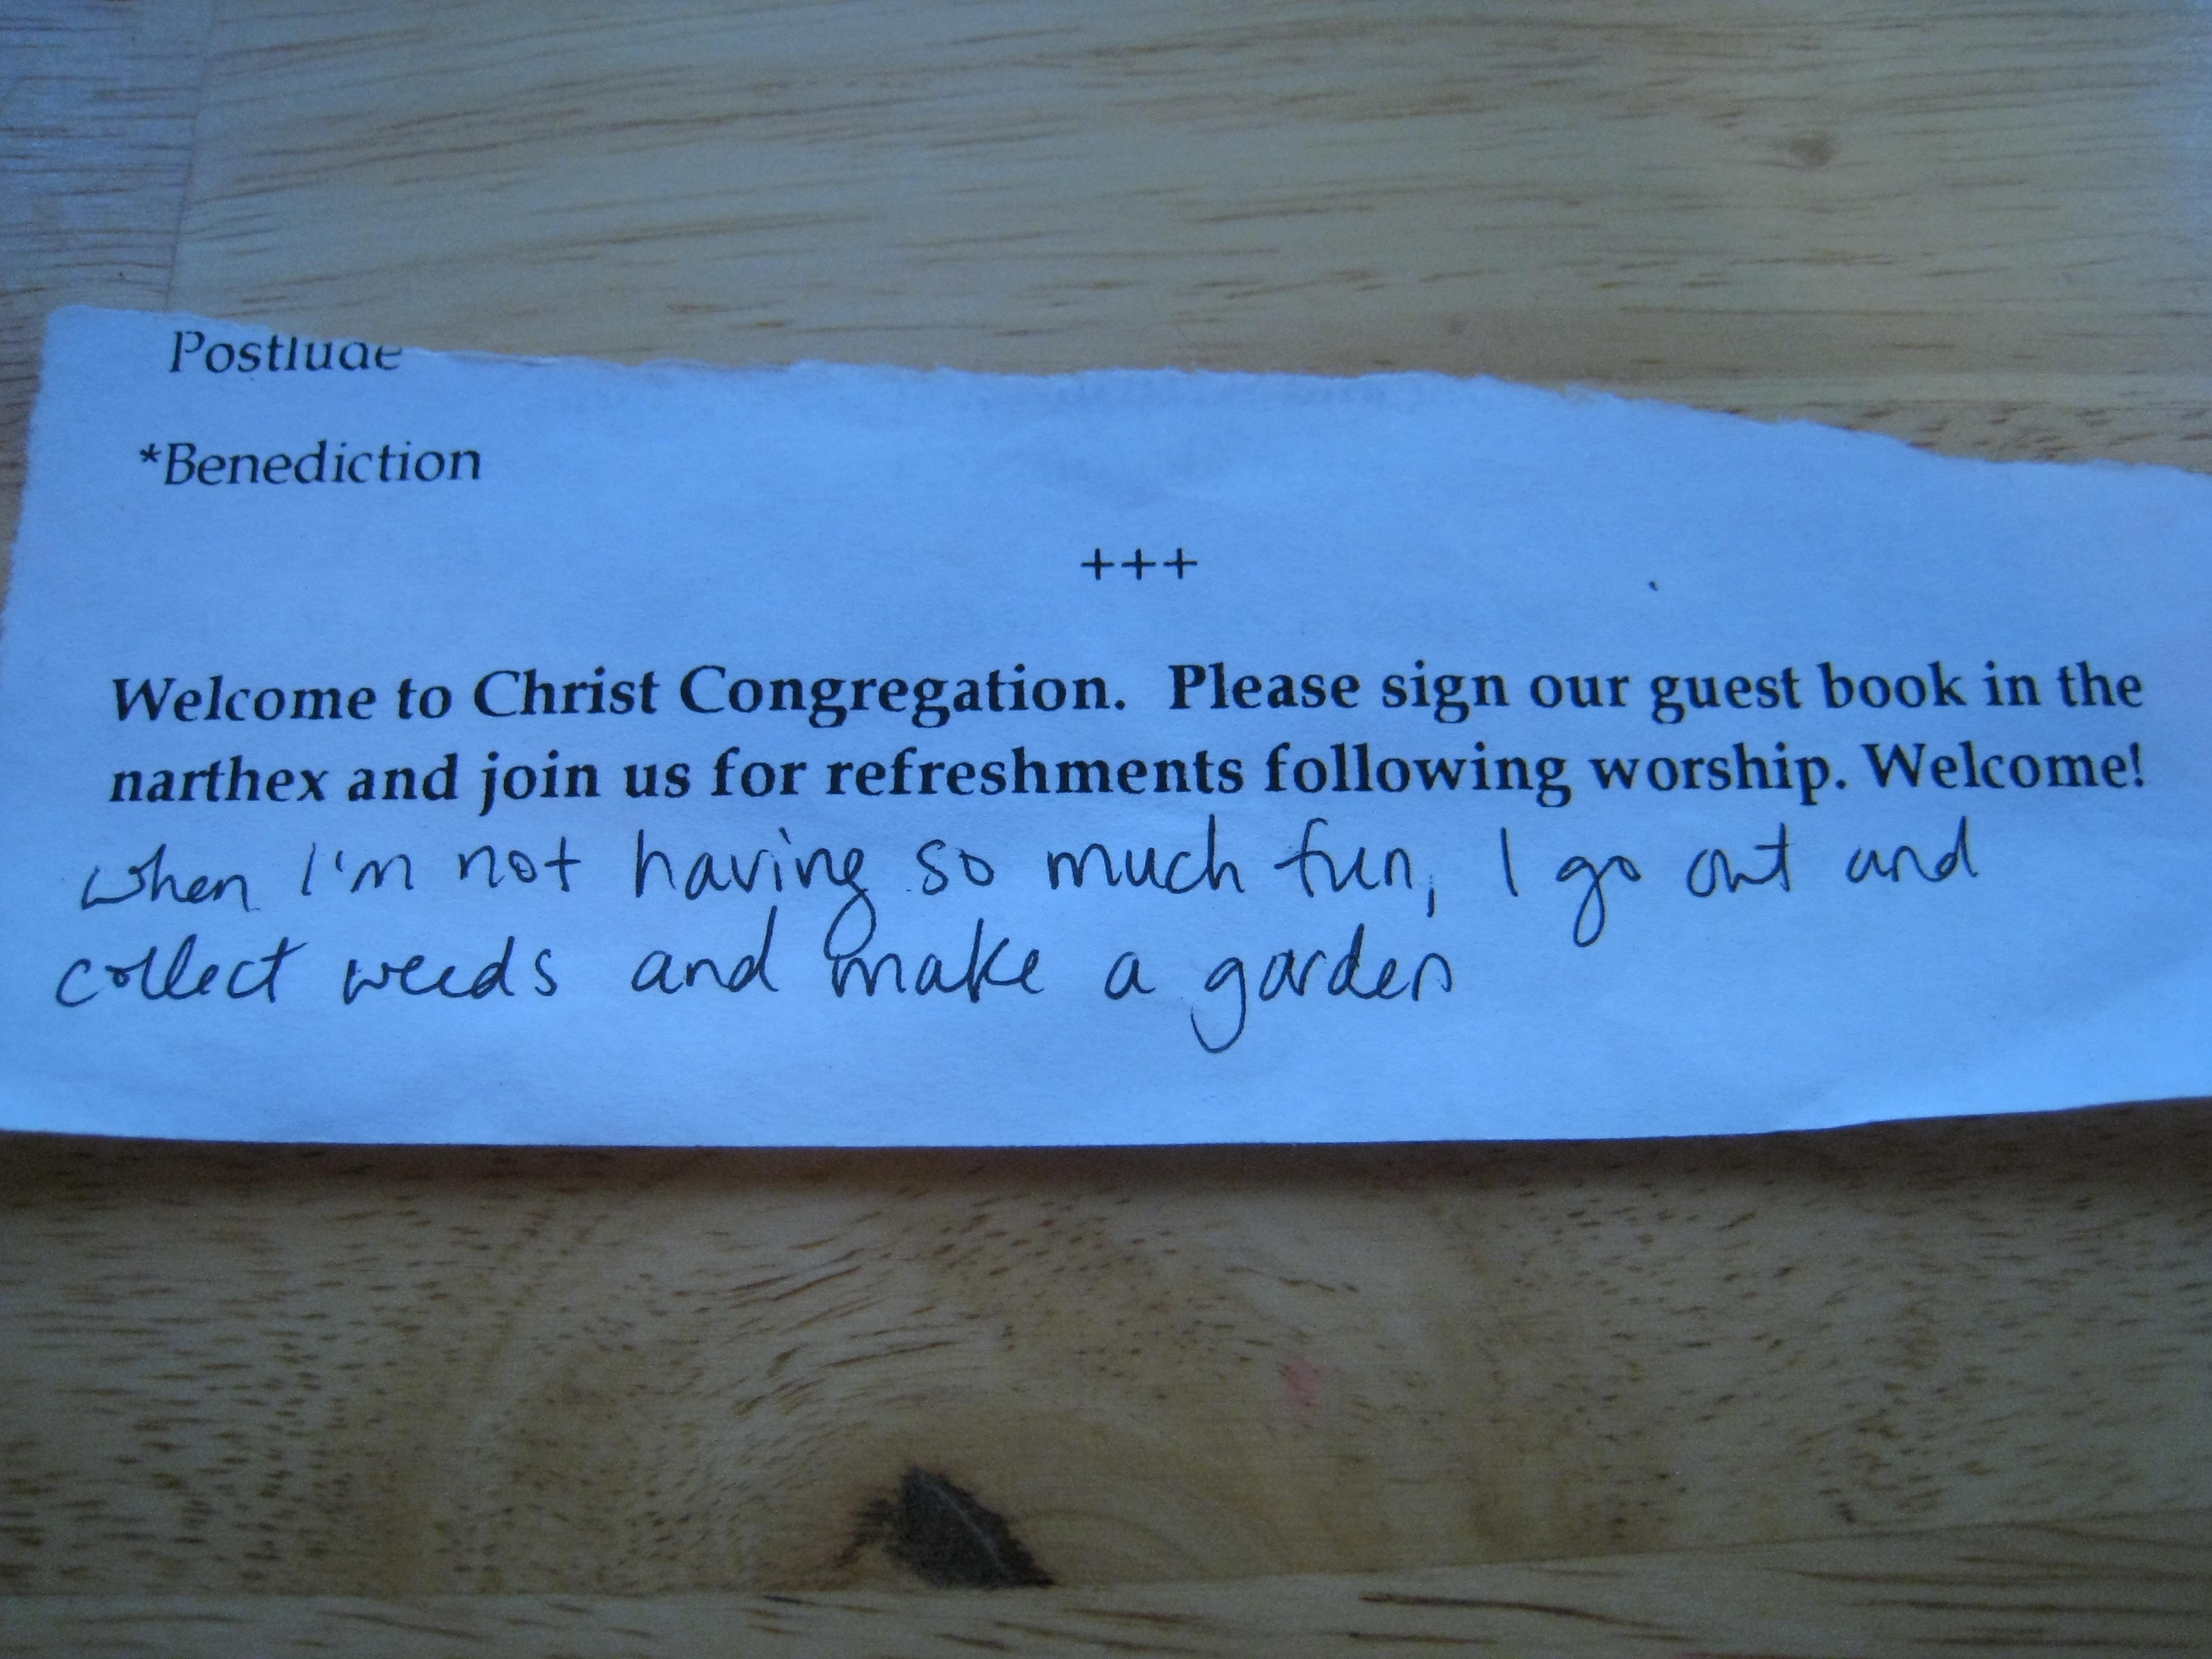 Postlude
*Benediction
+++
Welcome to Christ Congregation. Please sign our guest book in the
narthex and join us for refreshments following worship. Welcome!
when I'm not having so much fun, I go out and
collect weeds and make a garden